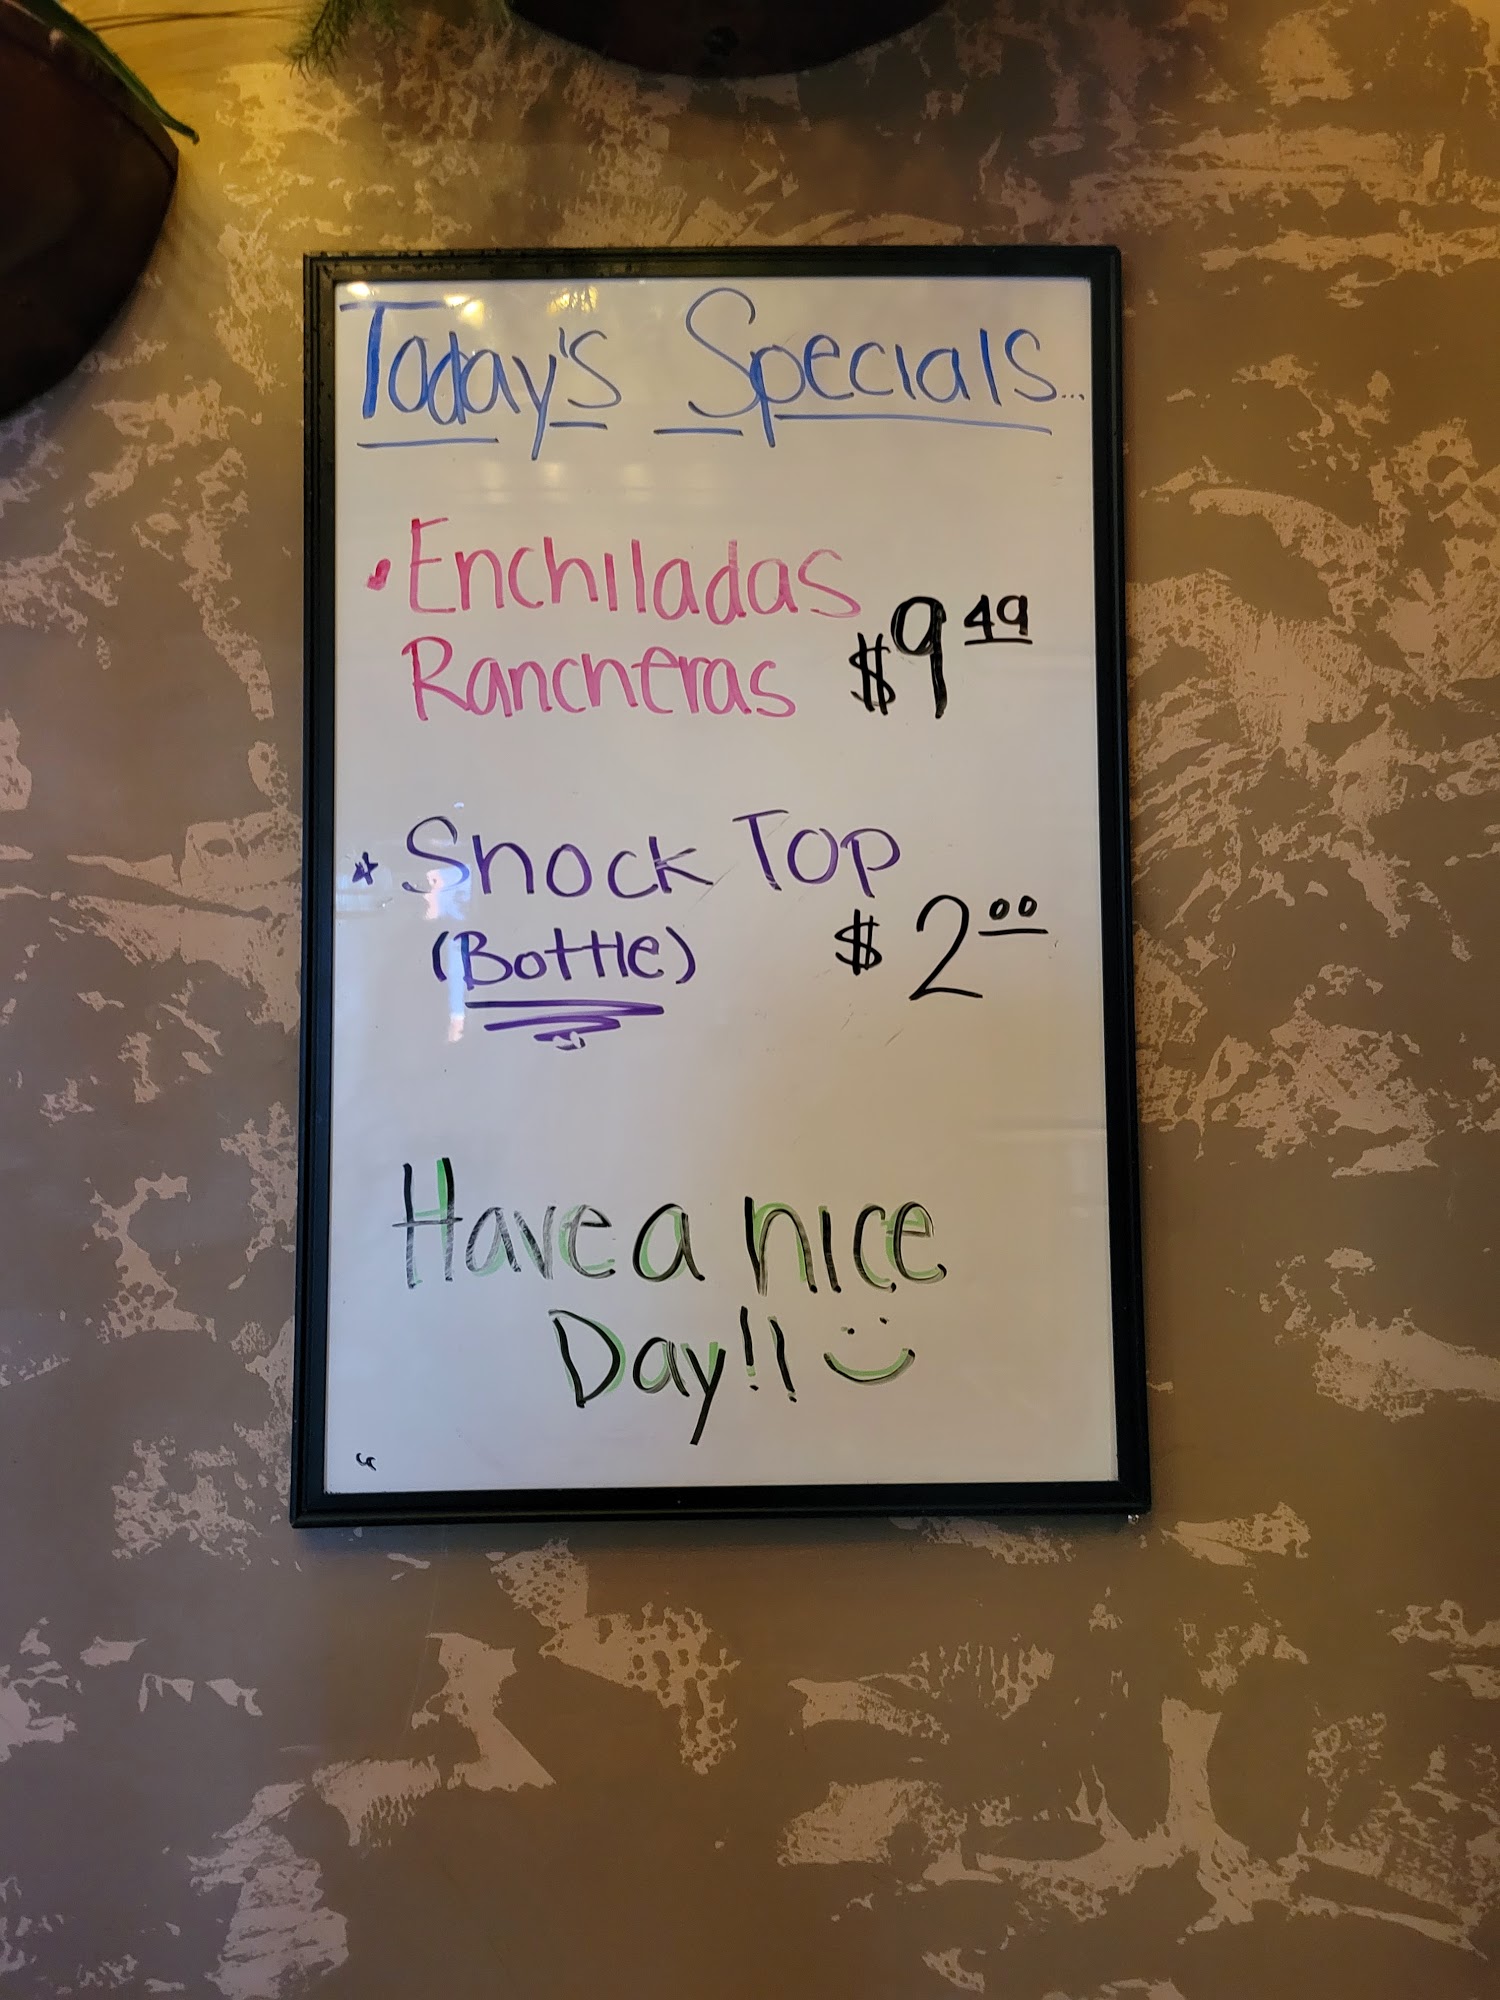 Today's Specials...
• Enchiladas
Rancheras $9 49
* Shock Top
(Bottle) $2 00
Have a nice
Day!! :)